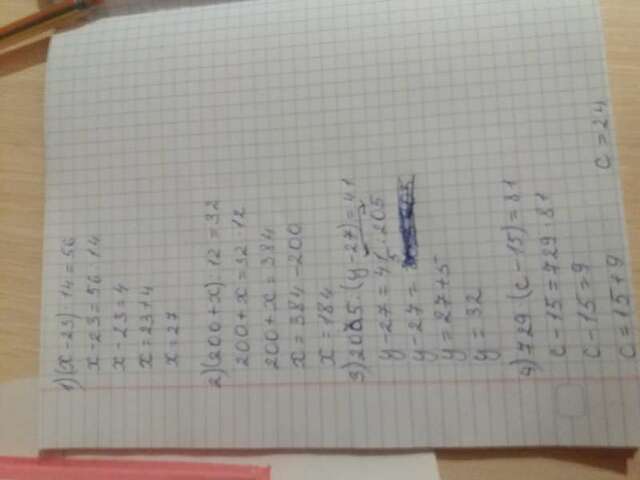 1)(x-23)·14=56
x-23=56:14
x-23=4
x=23+4
x=27
2)(200+x):12=32
200+x=32·12
200+x=384
x=384-200
x=184
3)205:(y-27)=41
y-27=41:205
y-27=
y=27+5
y=32
4)729:(c-15)=81
c-15=729:81
c-15=9
c=15+9 c=24